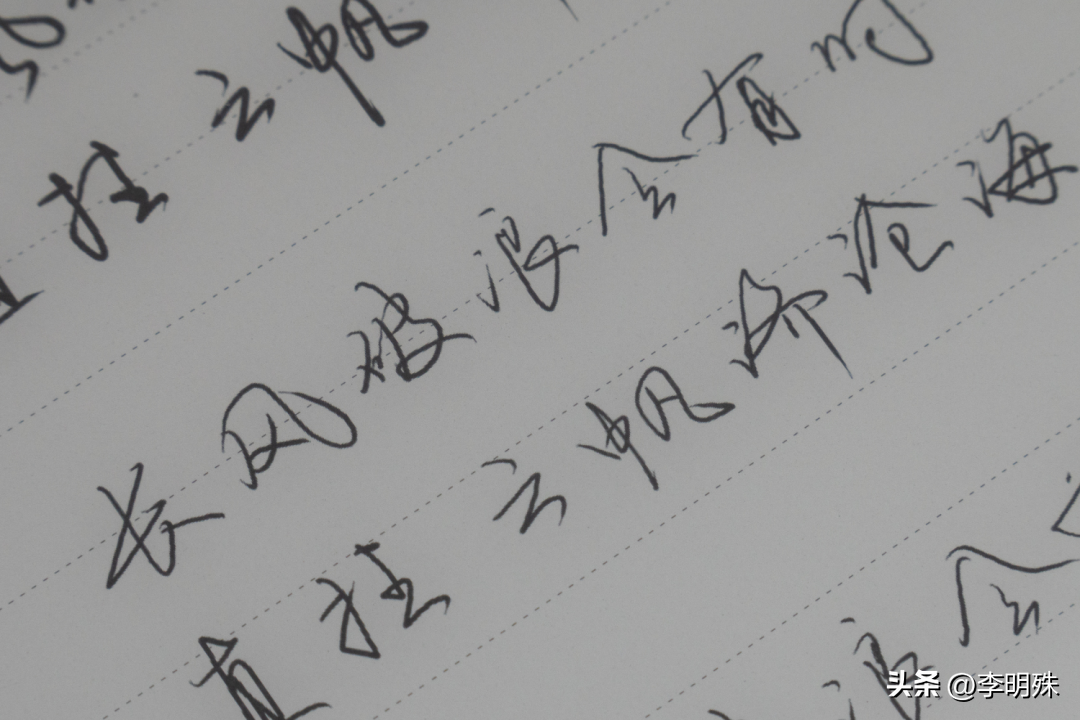 挂云帆
长风破浪会有时
直挂云帆济沧海
浪会
头条 @李明殊